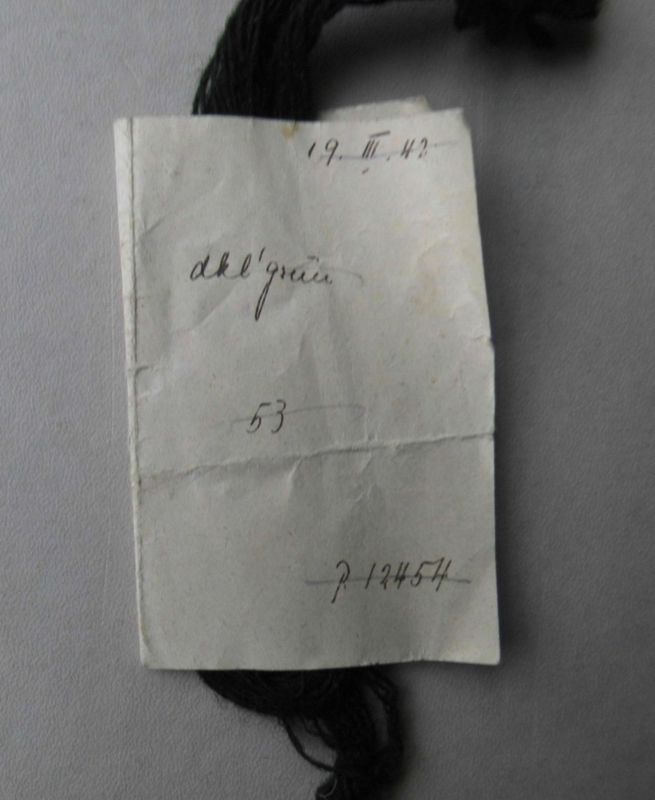 19. III. 42
dkl'grün
53
P. 12454